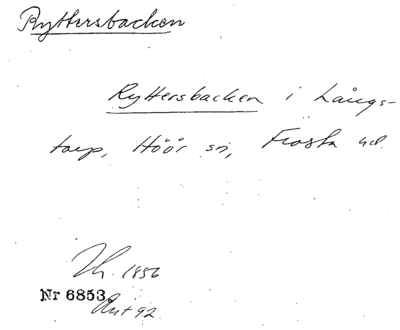 Ryttersbacken
Ryttersbacken i Långs-
torp, Höör sn, Frosta hd.
1856
Nr 6853
92